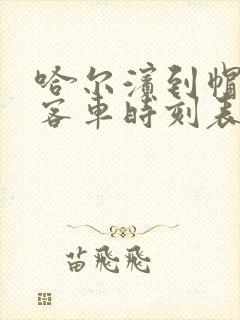 哈尔滨到帽
客车时刻表
苗飛飛